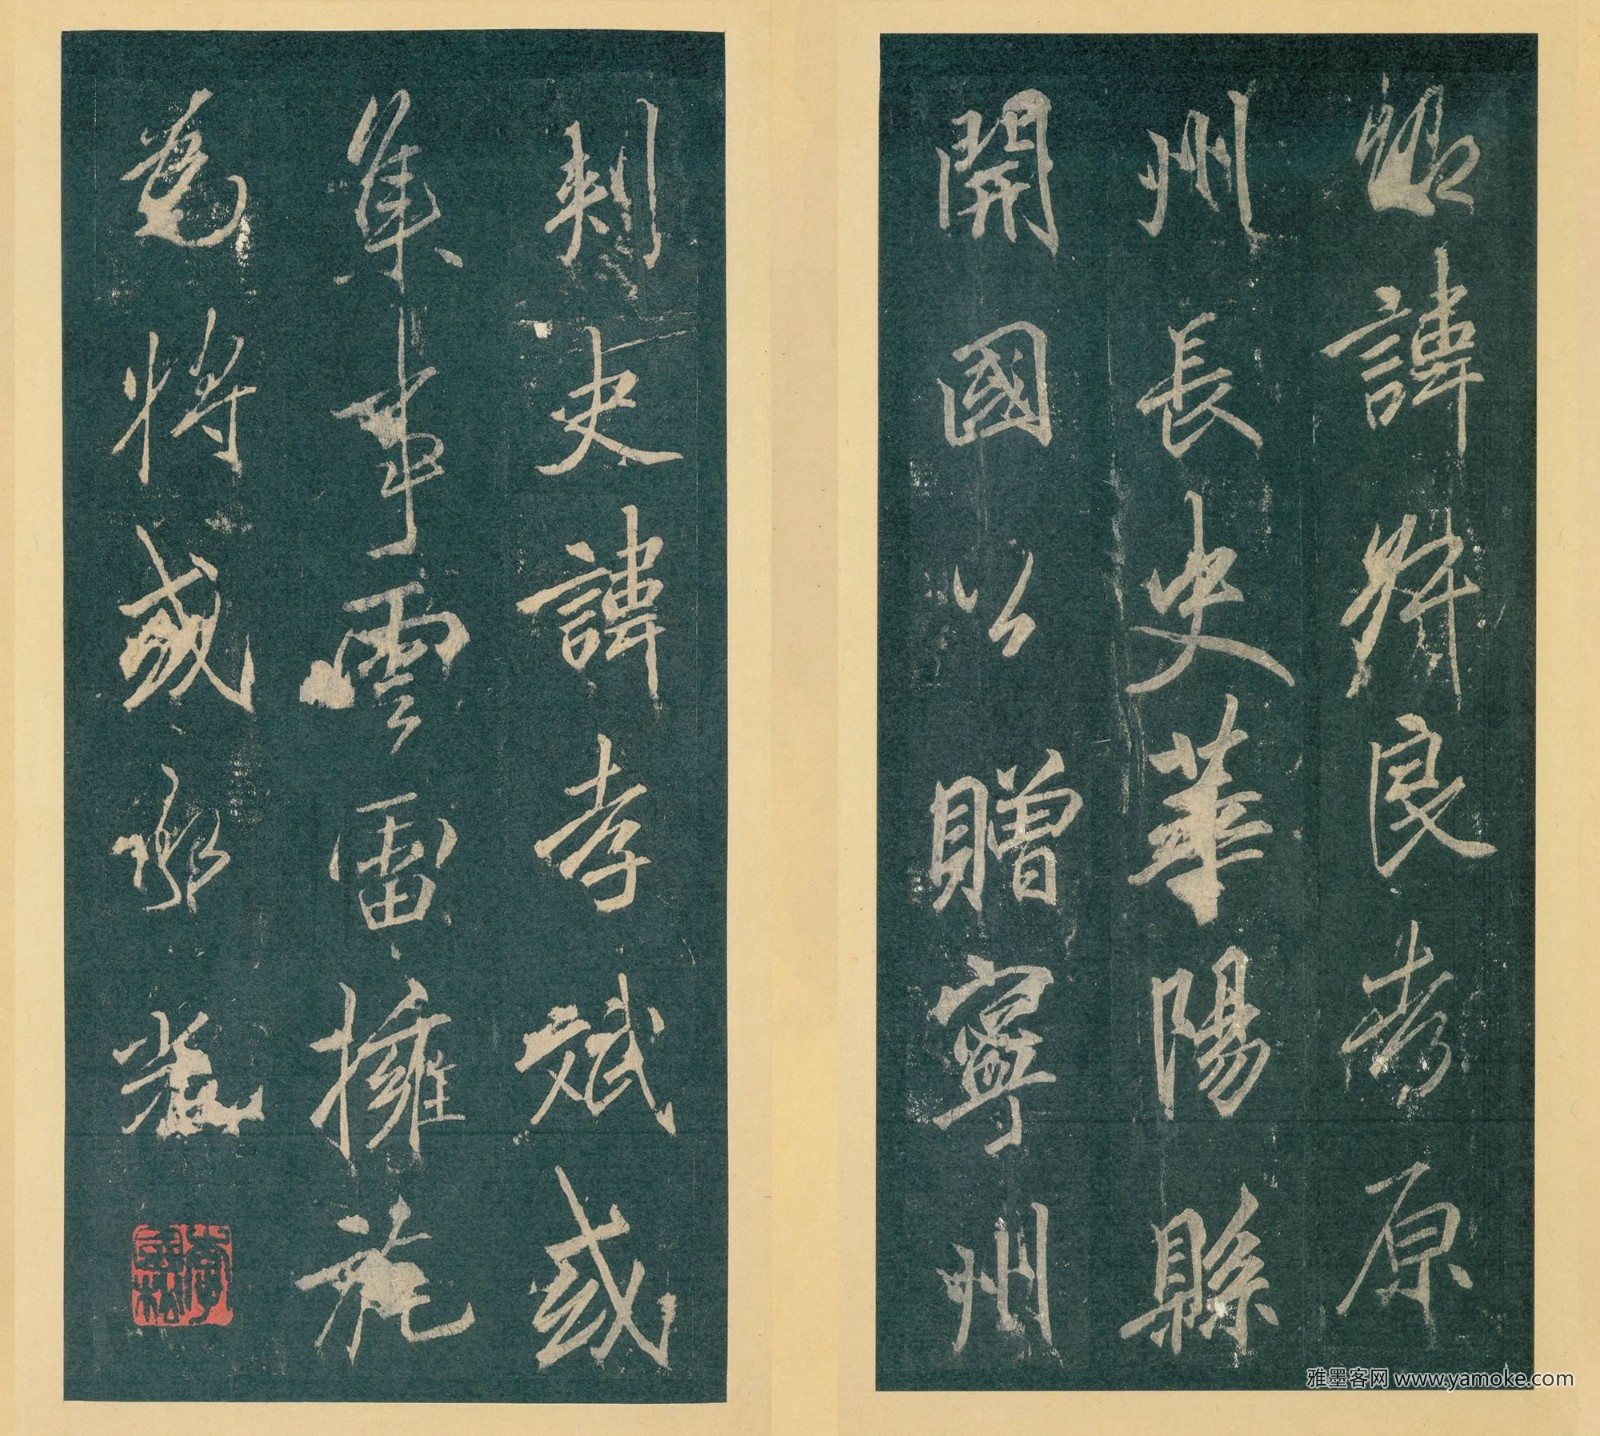 諱叔良考原
州長史華陽縣
開國公贈寧州
刺史諱孝斌或
集事雲雷擁旄
為將或
雅墨客网 www.yamoke.com